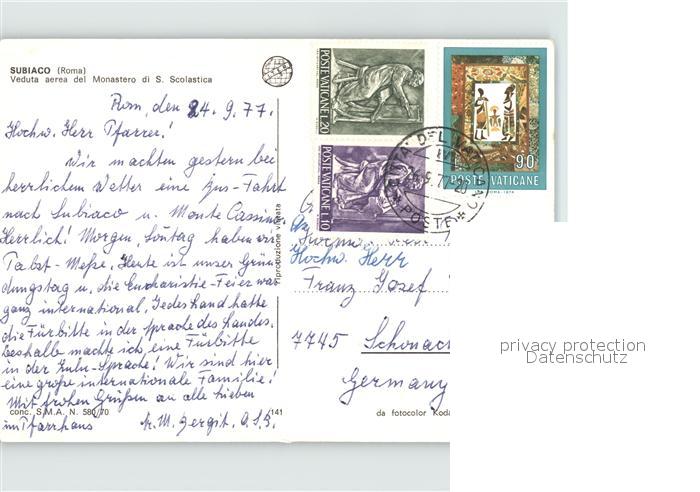 SUBIACO (Roma)
Veduta aerea del Monastero di S. Scolastica
Rom, den 24. 9. 77.
Hochw. Herr Pfarrer!
Wir machten gestern bei
herrlichem Wetter eine Bus-Fahrt
nach Subiaco u. Monte Cassino.
Herrlich! Morgen, Sonntag haben wir
Papst-Messe. Heute ist unser Grün-
dungstag u. die Eucharistie-Feier war
ganz international. Jedes Land hatte
die Fürbitte in der Sprache des Landes.
Deshalb machte ich eine Fürbitte
in der Zulu-Sprache! Wir sind hier
eine große internationale Familie!
Mit frohen Grüßen an alle Lieben
im Pfarrhaus
conc. S.M.A. N. 580/70
141
riproduzione vietata
POSTE VATICANE L.20
POSTE VATICANE L.10
90
POSTE VATICANE
ROMA-1974
POSTE
Hochw. Herr
Franz Josef
7745 Schonach
Germany
da fotocolor Koda
privacy protection
Datenschutz